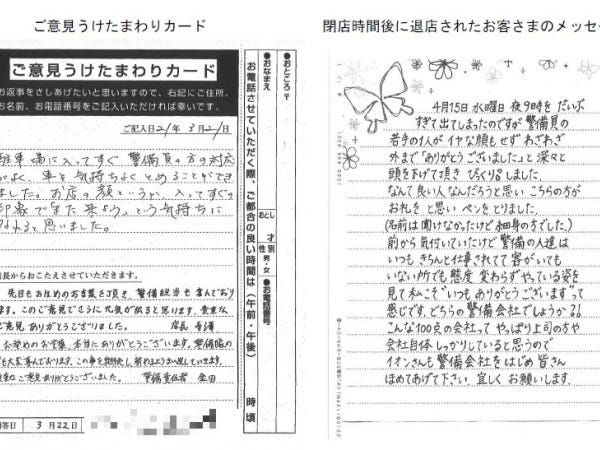 ご意見うけたまわりカード
閉店時間後に退店されたお客さまのメッセ
ご意見うけたまわりカード
お返事をさしあげたいと思いますので、右記にご住所、
お名前、お電話番号をご記入いただければ幸いです。
ご記入日21年 3月21日
駐車場に入ってすぐ 警備員の方の対応
がよく、車を気持ちよくとめることができ
ました。お店の顔というか、入ってすぐの
印象でまた来ようという気持ちに
なれると思いました。
店長からおこたえさせていただきます。
先日もお褒めのお言葉を頂き 警備担当も喜んでおり
ます。このご意見でさらに元気が出ると思います。貴重な
ご意見ありがとうございました。 店長
お褒めのお言葉、本当にありがとうございます。
ご意見ありがとうございました。 警備責任者
回答日 3月22日
●おところ 〒
●おなまえ
おとし 才
性別 男・女
●お電話番号
お電話させていただく際、ご都合の良い時間は(午前・午後) 時頃
4月15日 水曜日 夜9時を だいぶ
すぎて出てしまったのですが 警備員の
若手の1人が イヤな顔もせず わざわざ
外まで「ありがとうございました」と 深々と
頭を下げて頂き びっくりしました。
なんて良い人なんだろうと思い こちらの方が
お礼を と思い ペンをとりました。
(名前は聞けなかったけど 細身の方でした。)
前から 気付いていたけど 警備の人達は
いつも きちんと仕事されてて 客がいても
いない所でも 態度 変わらず やっている姿を
見て 私こそ"いつも ありがとうございます"って
感じです。どちらの 警備会社でしょうか?
こんな100点の会社って やっぱり上司の方や
会社自体 しっかりしていると思うので
イオンさんも 警備会社をはじめ 皆さん
ほめてあげて下さい。宜しく お願いします。